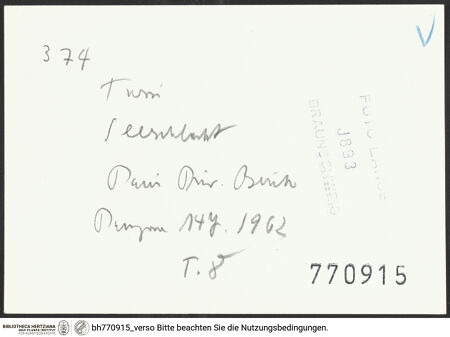 374
Tassi
Seeschlacht
Paris Priv. Besitz
1962
T. 8
FOTO
J893
770915
BIBLIOTHECA HERTZIANA
MAX-PLANCK-INSTITUT
FÜR KUNSTGESCHICHTE
bh770915_verso Bitte beachten Sie die Nutzungsbedingungen.